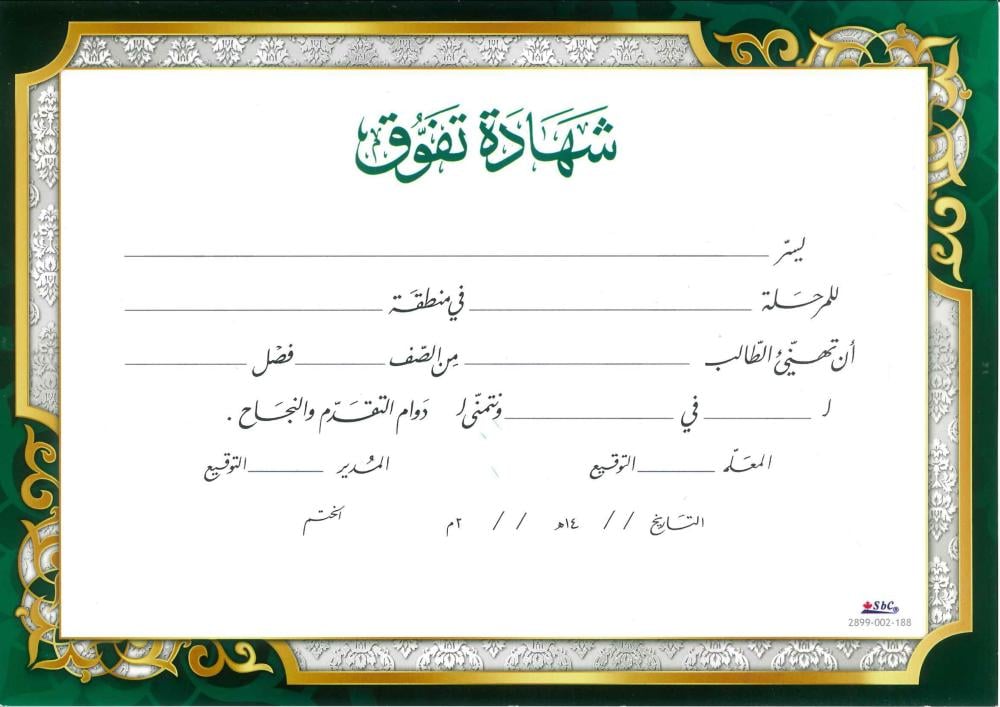 شَهَادَة تَفَوُّق
يسرّ ____________
للمرحَلة ____________ في منطقَة ____________
أن تهنّئ الطّالب ____________ مِن الصّف ________ فصْل ________
لـ ________ في ____________ ونتمنّى لـ دَوام التقَدّم والنجَاح .
المعَلّم ________ التوقيع المُدير ________ التوقيع
التاريخ / / ١٤هـ / / ٢م الختم
SbC®
2899-002-188